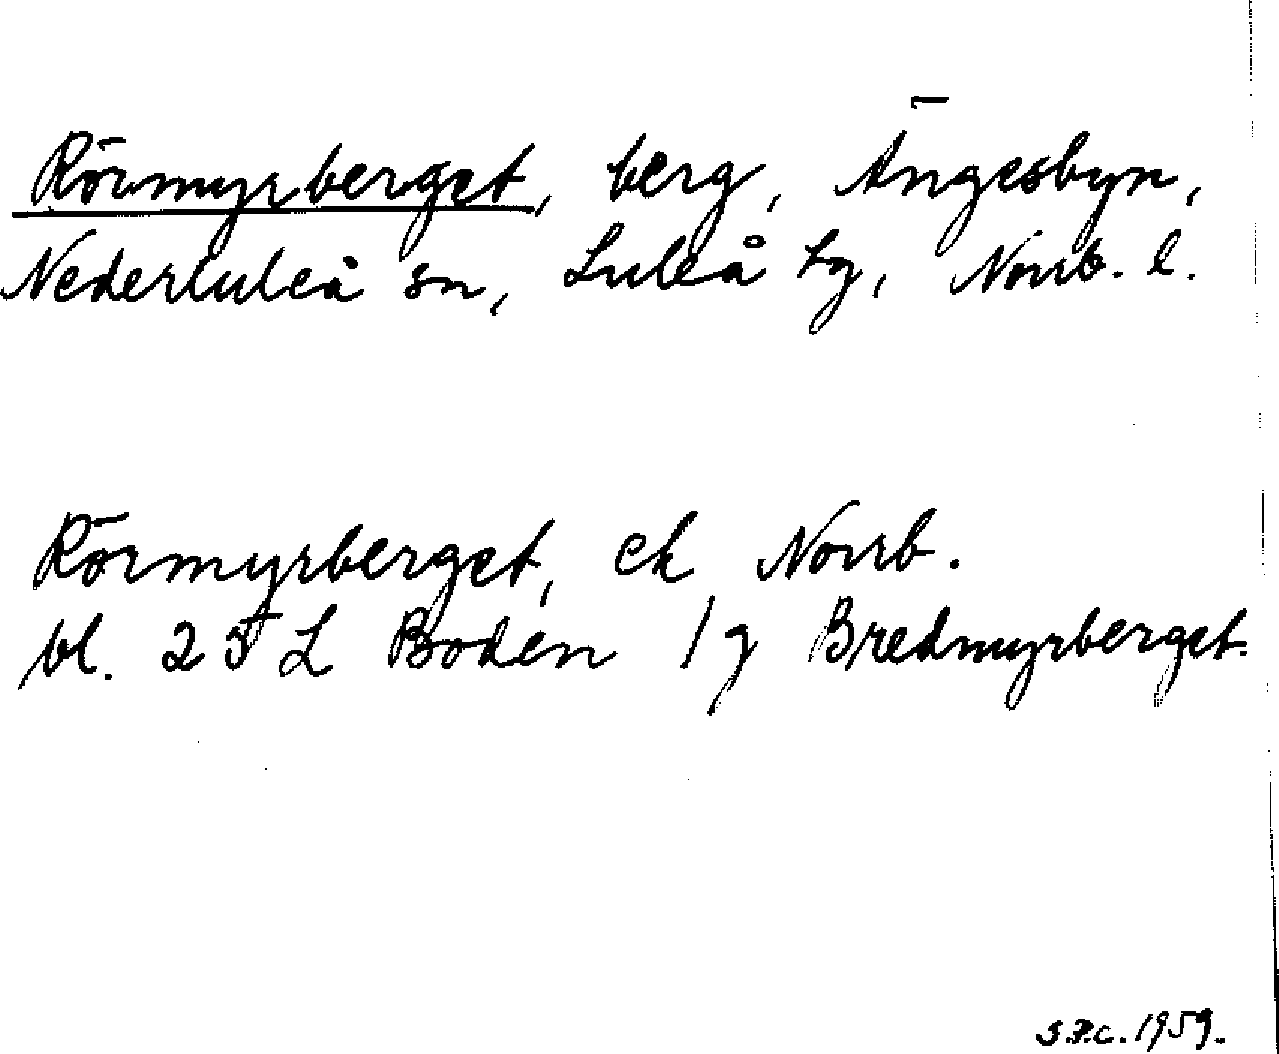 Rörmyrberget, berg, Ängesbyn,
Nederluleå sn, Luleå tg, Norrb. l.
Rörmyrberget, ek Norrb.
bl. 25 L Boden / g Bredmyrberget.
S.P.C. 1959.